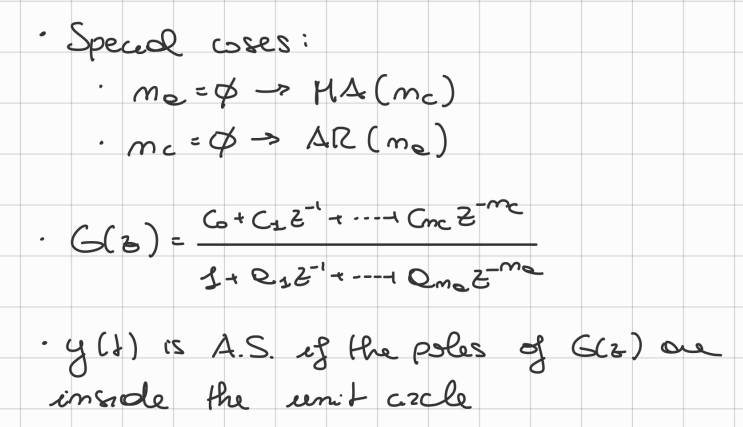 · Special cases:
· na = ø → MA(nc)
· nc = ø → AR(na)
· G(z) = (C0 + C1 z^-1 + ····+ Cnc z^-nc) / (1 + a1 z^-1 + ····+ ana z^-na)
· y(t) is A.S. if the poles of G(z) are
inside the unit circle